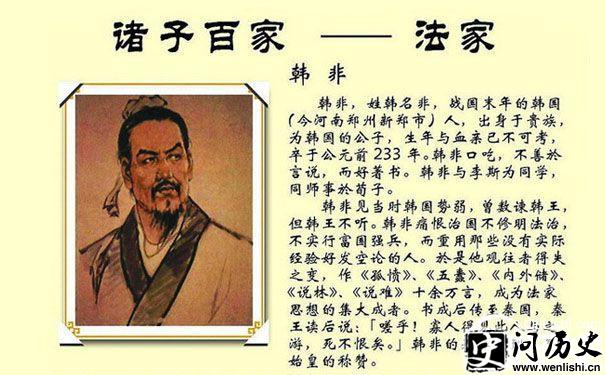 诸子百家 —— 法家
韩 非
韩非，姓韩名非，战国末年的韩国
(今河南郑州新郑市）人，出身于贵族，
为韩国的公子，生年与血亲已不可考，
卒于公元前 233 年。韩非口吃，不善於
言说，而好著书。韩非与李斯为同学，
同师事於荀子。
韩非见当时韩国势弱，曾数谏韩王，
但韩王不听。韩非痛恨治国不修明法治，
不实行富国强兵，而重用那些没有实际
经验好发空论的人。於是他观往者得失
之变，作《孤愤》、《五蠹》、《内外储》、
《说林》、《说难》十余万言，成为法家
思想的集大成者。书成后传至秦国，秦
王读后说：「嗟乎！寡人得见此人与之
游，死不恨矣。」韩非的
始皇的称赞。
史问历史
www.wenlishi.cn